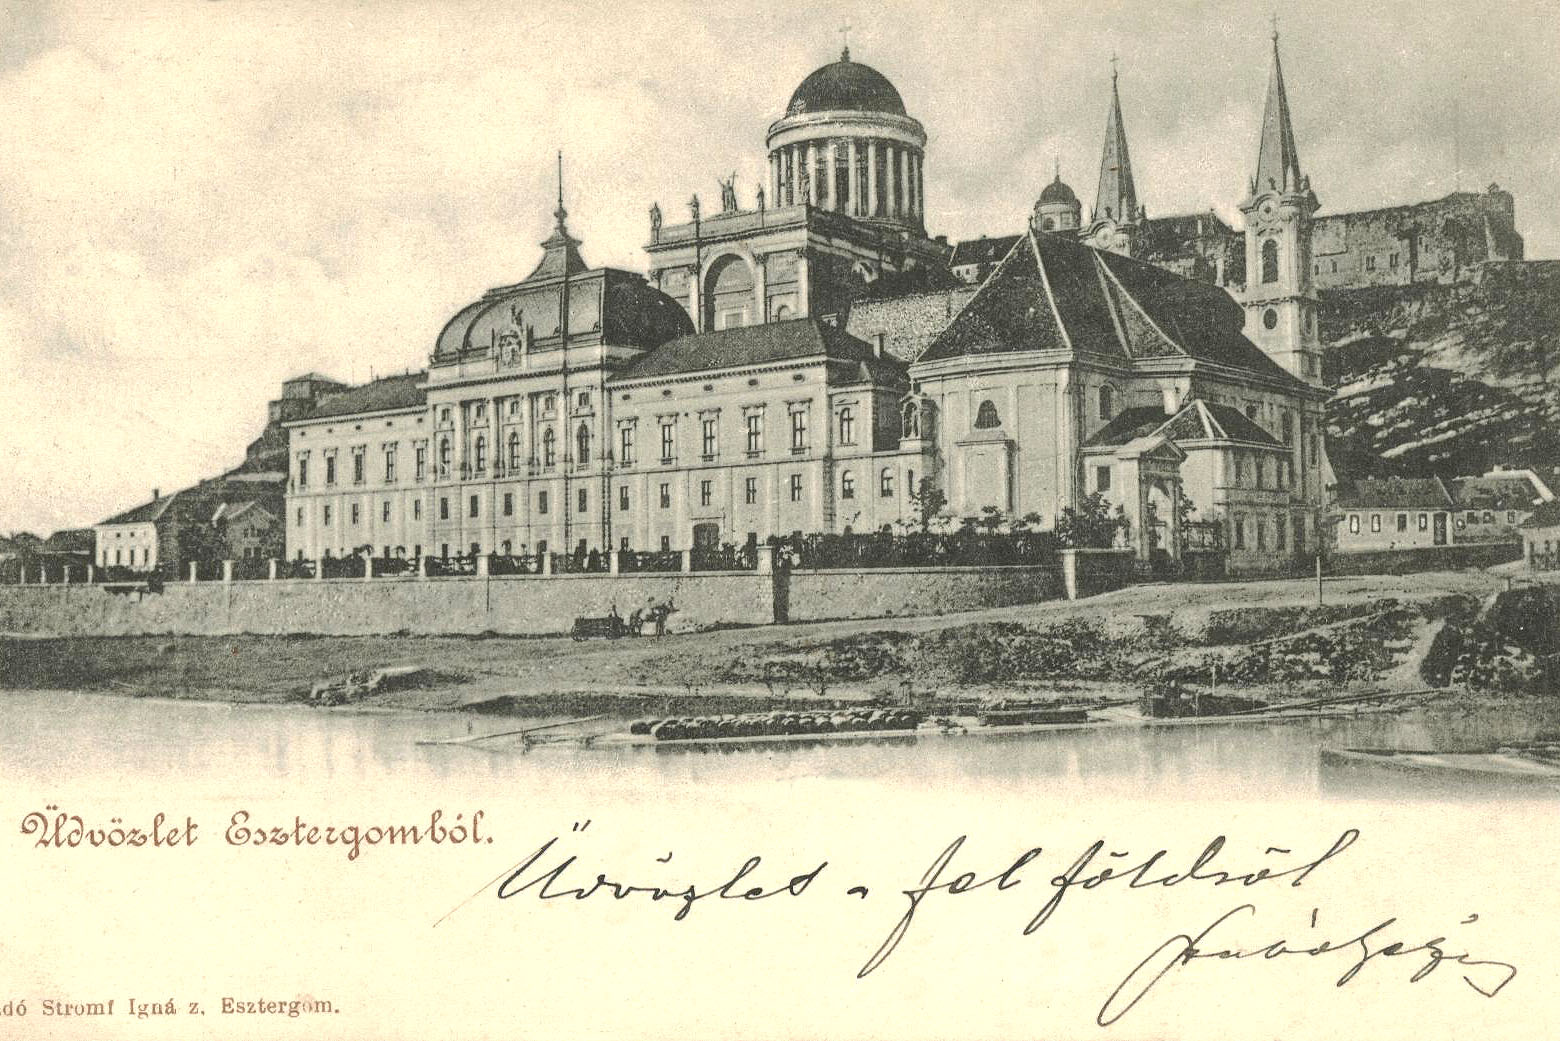 Üdvözlet Esztergomból.
Üdvözlet a fel földről
adó Stromf Igná z, Esztergom.